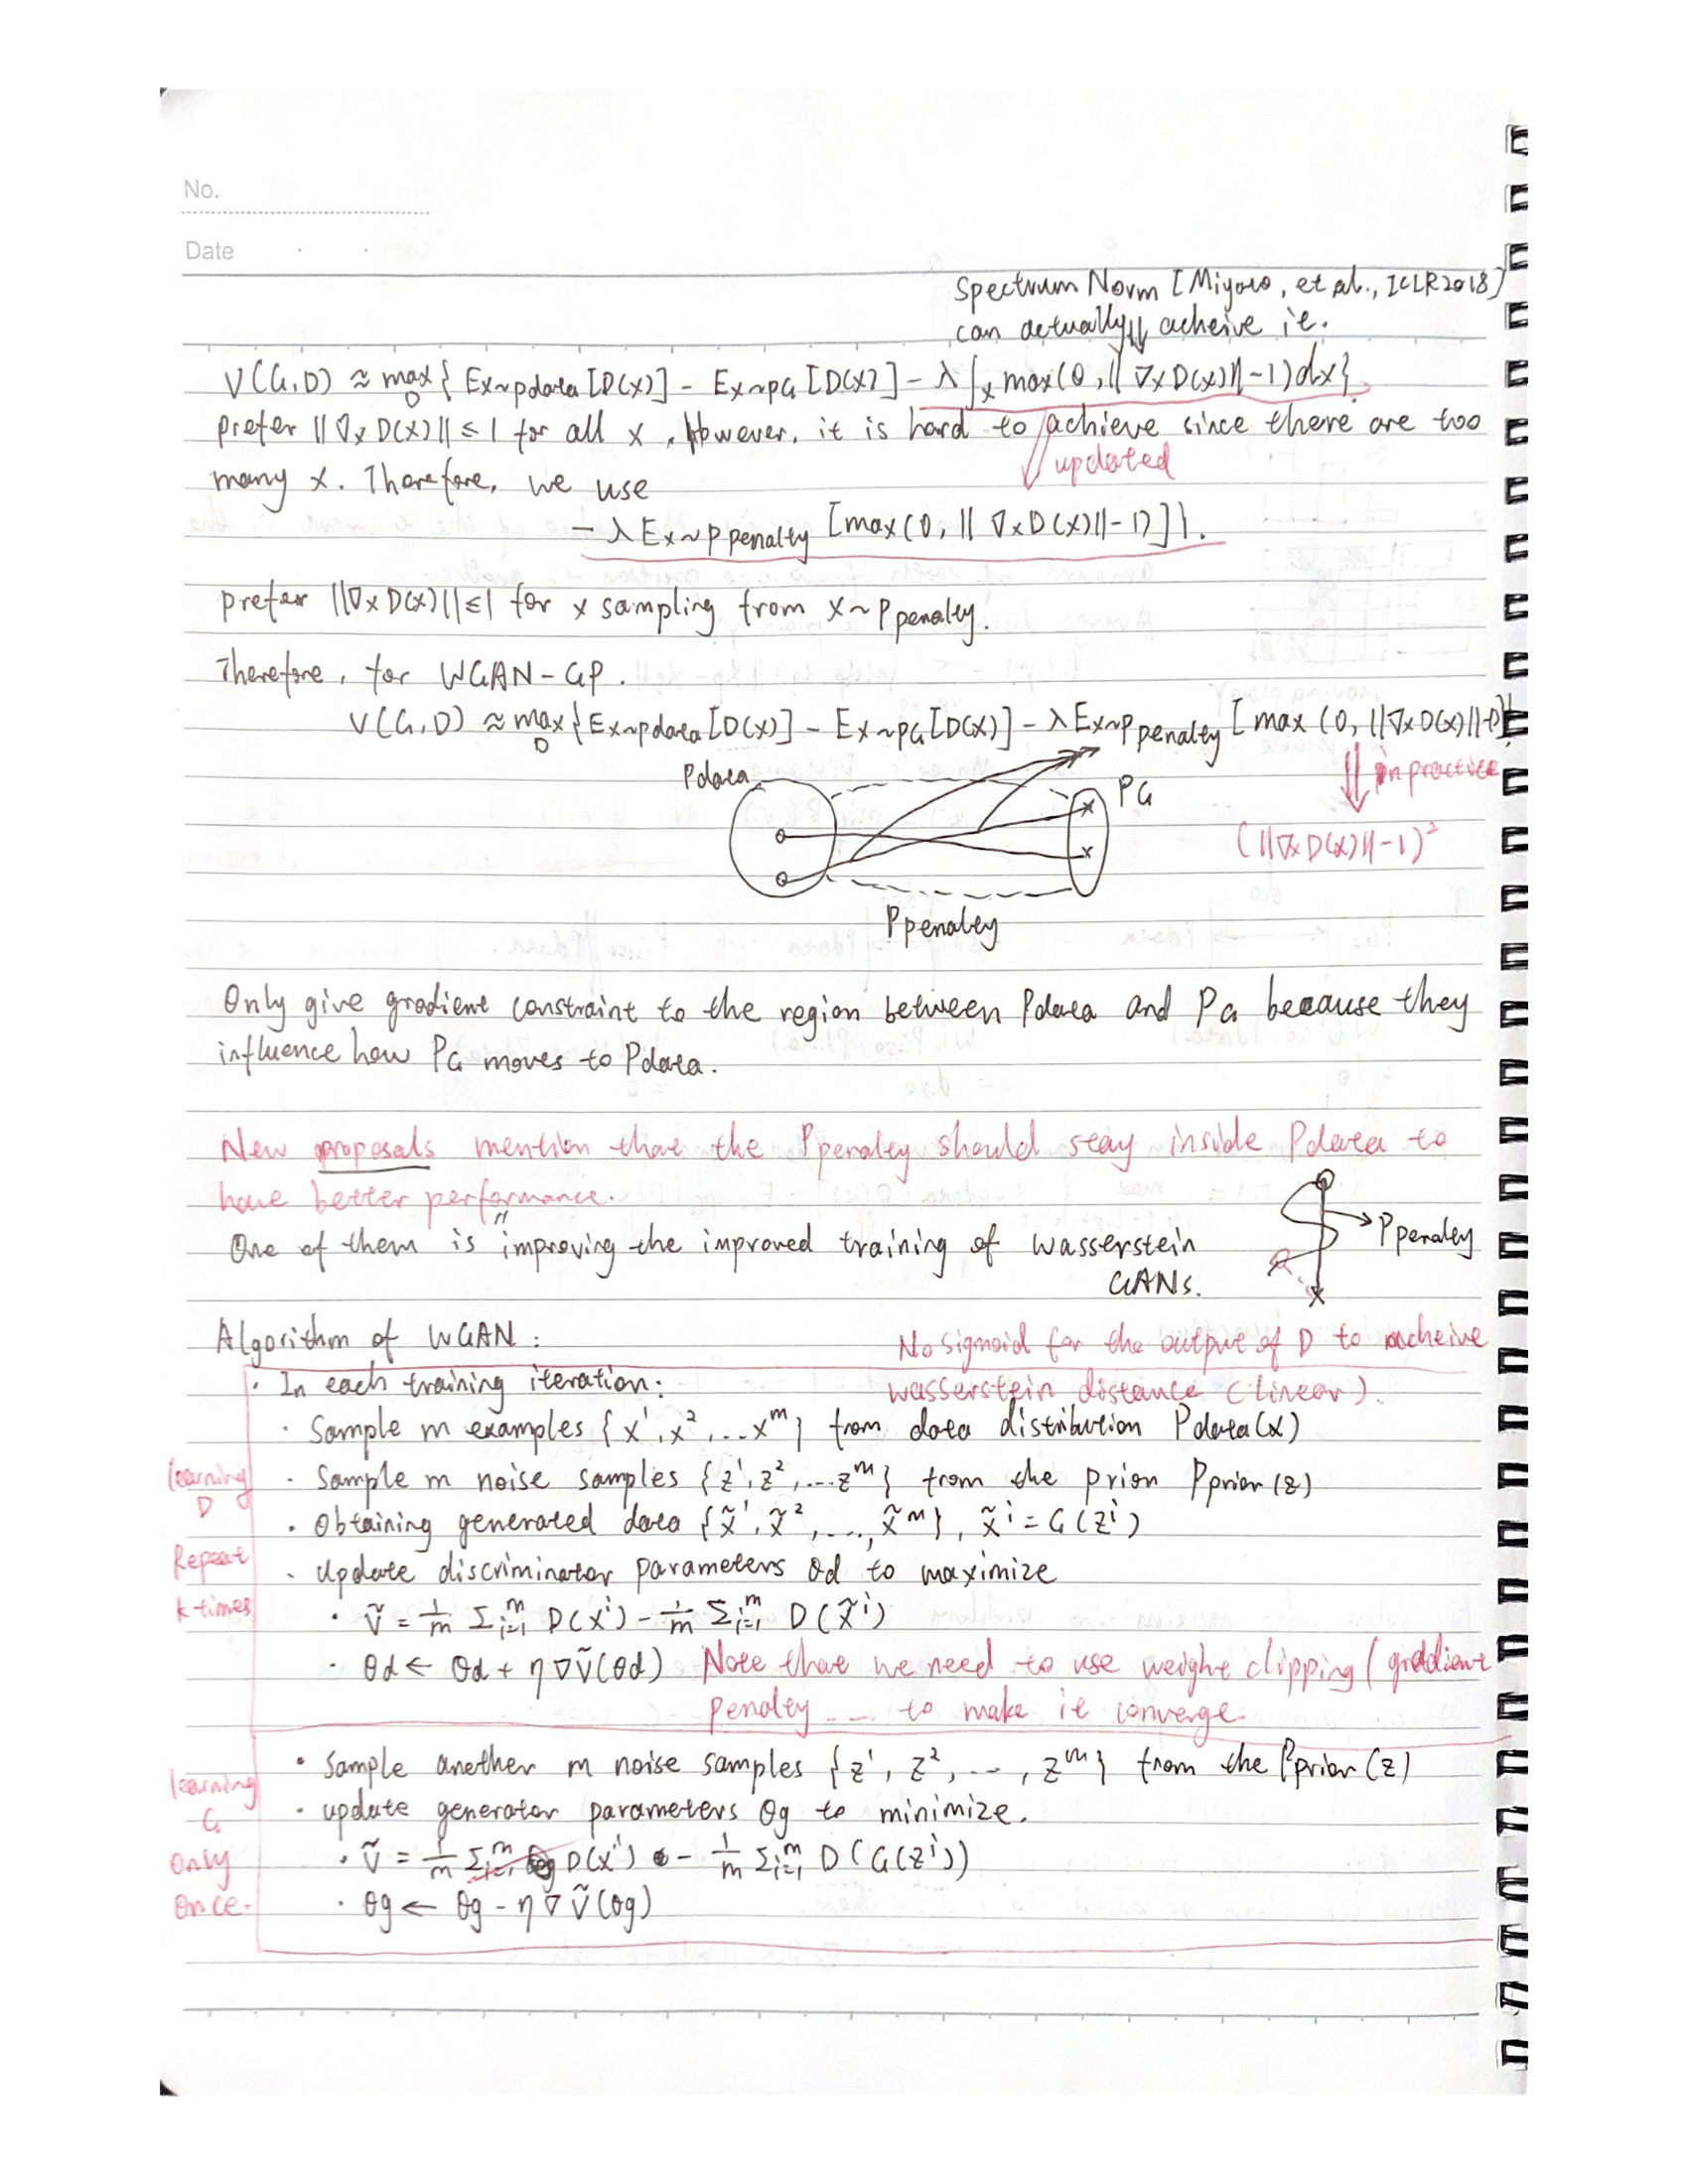 No.
Date
Spectrum Norm [Miyaro, et al., ICLR2018]
can actually acheive it.
V(G,D) ≈ max_D { E_{x~pdata}[D(x)] - E_{x~pG}[D(x)] - λ∫_x max(0, ||∇xD(x)||-1)dx}
prefer ||∇xD(x)|| ≤ 1 for all x. However, it is hard to achieve since there are too
updated
many x. Therefore, we use
- λ E_{x~p penalty} [max(0, || ∇xD(x)||-1)]}.
prefer ||∇xD(x)||≤1 for x sampling from x~Ppenalty.
Therefore, for WGAN-GP.
V(G,D) ≈ max_D {E_{x~pdata}[D(x)] - E_{x~pG}[D(x)] - λE_{x~p penalty} [max (0, ||∇xD(x)||-1)]}
Pdata
PG
in practice
(||∇xD(x)||-1)²
Ppenalty
Only give gradient constraint to the region between Pdata and PG because they
influence how PG moves to Pdata.
New proposals mention that the Ppenalty should stay inside Pdata to
have better performance.
Ppenalty
One of them is "improving the improved training of wasserstein
GANs.
Algorithm of WGAN:
No sigmoid for the output of D to acheive
wasserstein distance (linear).
· In each training iteration:
· Sample m examples {x¹, x², ... x^m} from data distribution Pdata(x)
learning
D
· Sample m noise samples {z¹, z², ... z^m} from the prior Pprior(z)
· Obtaining generated data {x̃¹, x̃², ..., x̃^m}, x̃^i = G(z^i)
Repeat
k times
· Update discriminator parameters θd to maximize
· Ṽ = 1/m Σ_{i=1}^m D(x^i) - 1/m Σ_{i=1}^m D(x̃^i)
· θd ← θd + η∇Ṽ(θd) Note that we need to use weight clipping / gradient
penalty ... to make it converge.
learning
G
Only
Once.
· Sample another m noise samples {z¹, z², ..., z^m} from the Pprior(z)
· update generator parameters θg to minimize.
· Ṽ = 1/m Σ_{i=1}^m D(x^i) - 1/m Σ_{i=1}^m D(G(z^i))
· θg ← θg - η∇Ṽ(θg)